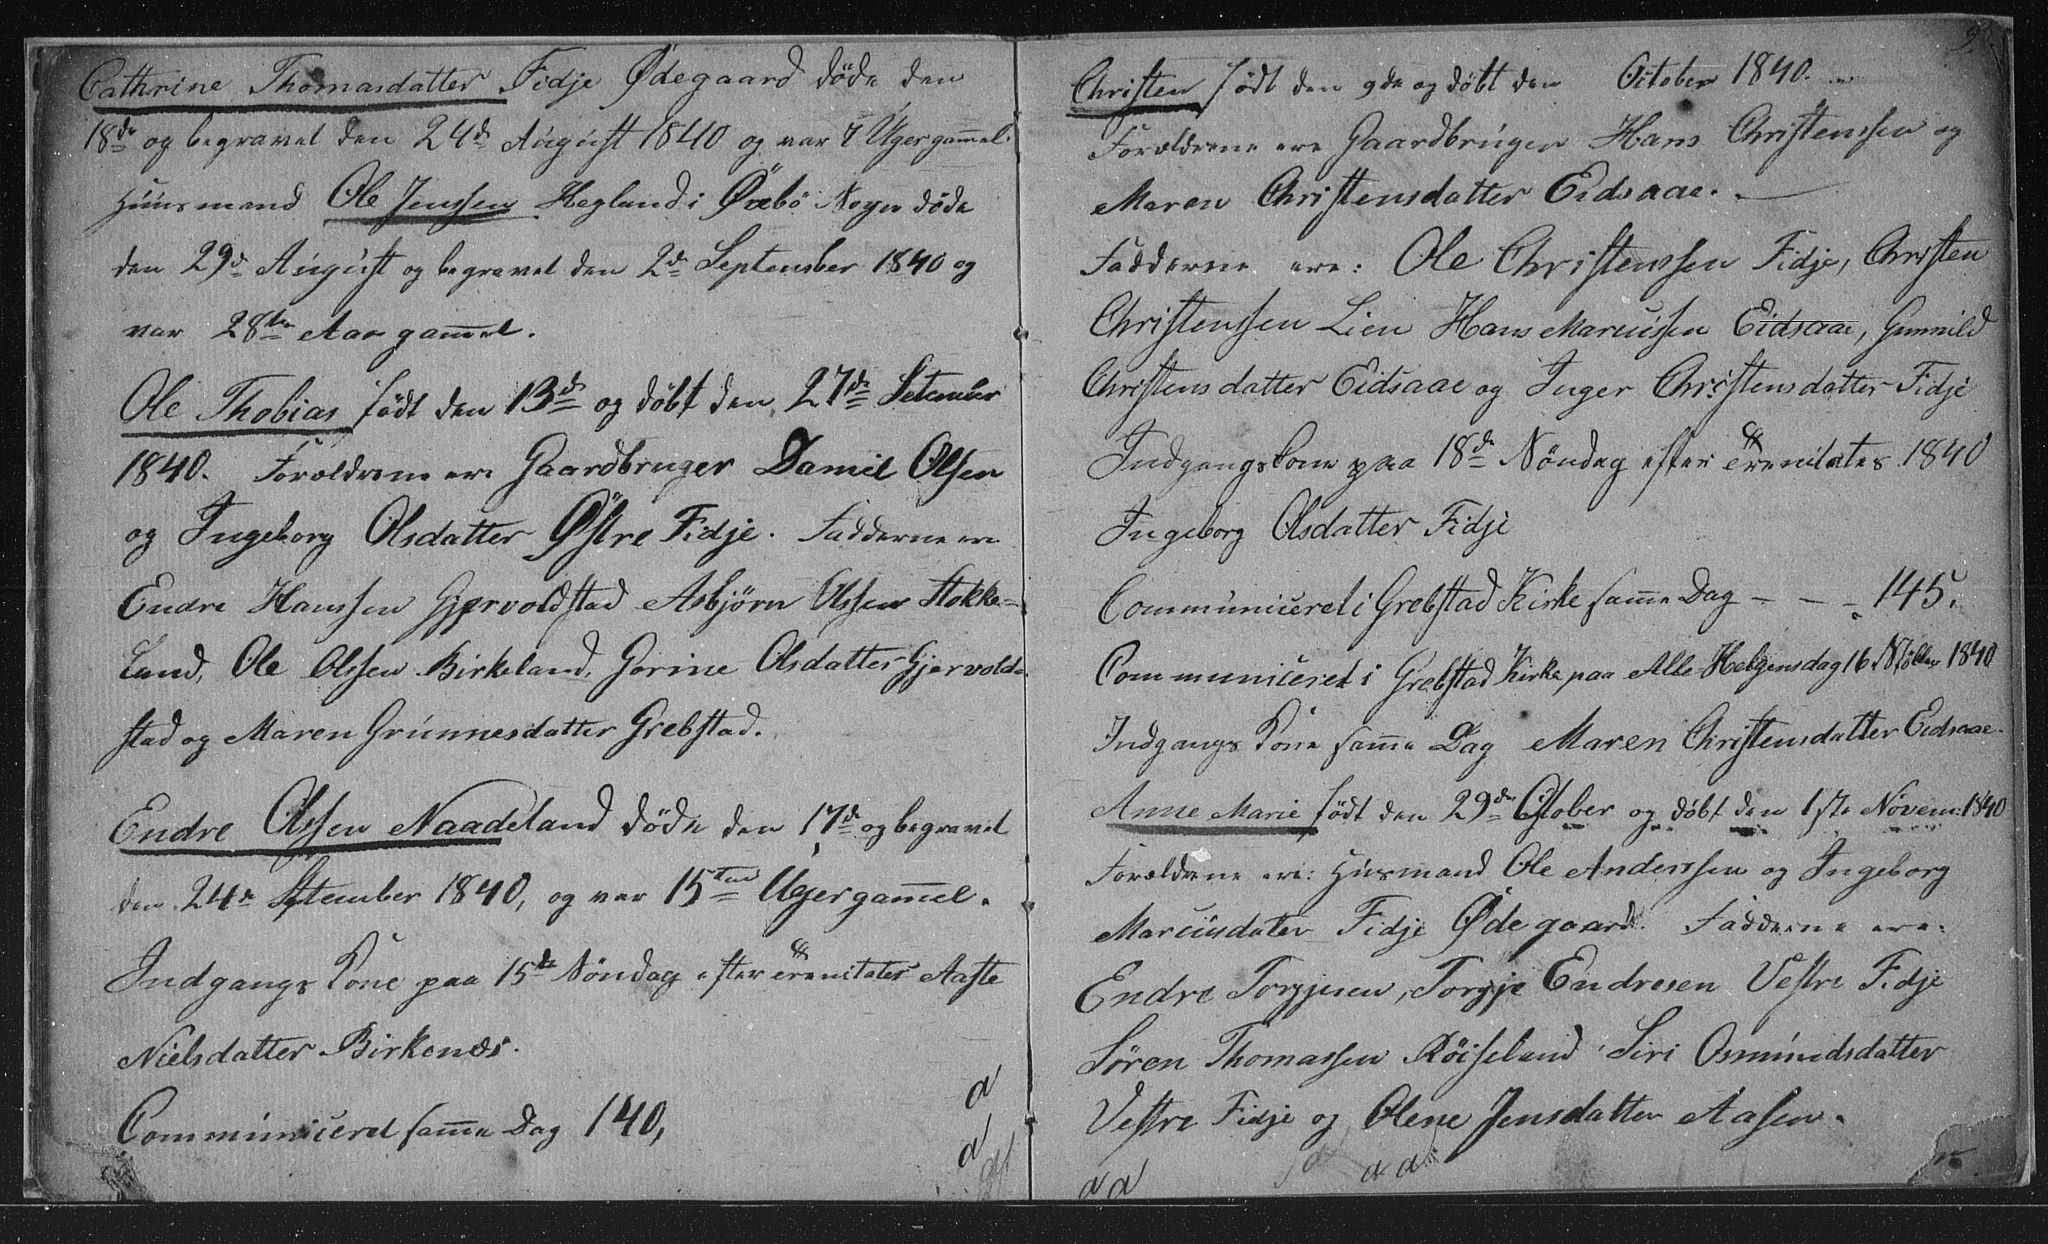 Cathrine Thomasdatter Fidje Ødegaard døde den
18de og begravet den 24de August 1840 og var 7 Uger gammel.
Huusmand Ole Jenssen Hægland i Øvrebø Sogn døde
den 29de August og begravet den 2de September 1840 og
var 28de Aar gammel.
Ole Thobias født den 13de og døbt den 27de Setember
1840. Forældrene ere Gaardbruger Daniel Olsen
og Ingeborg Olsdatter Østre Fidje. Fadderne ere
Endre Hanssen Gjervoldstad Asbjørn Olssen Stokke-
land, Ole Olssen Birkeland, Gorine Olsdatter Gjervold-
stad og Maren Grunnesdatter Grebstad.
Endre Olssen Naadeland døde den 17de og begravet
den 24de Setember 1840, og var 15ten Uger gammel.
Indgangs Kone paa 15de Søndag efter Trenitates Aaste
Nielsdatter Birkenæs.
Communiceret samme Dag 140,
Christen født den 9de og døbt den October 1840.
Forældrene ere Gaardbruger Hans Christenssen og
Maren Christensdatter Eidsaae.
Fadderne ere: Ole Christenssen Fidje, Christen
Christenssen Lien Hans Marcussen Eidsaae, Gunnild
Christensdatter Eidsaae og Inger Christensdatter Fidje
Indgangskone paa 18de Søndag efter Trenitates 1840
Ingeborg Olsdatter Fidje
Communiceret i Grebstad Kirke samme Dag - - - 145.
Communiceret i Grebstad Kirke paa Alle Helgensdag 16 1840
Indgangs Kone samme Dag Maren Christensdatter Eidsaae.
Anne Marie født den 29de October og døbt den 1ste Novem: 1840
Forældrene ere: Husmand Ole Anderssen og Ingeborg
Marcusdater Fidje Ødegaard. Fadderne ere:
Endre Torgjesen, Torgje Endresen Vestre Fidje
Søren Thomassen Røiseland Siri Osmundsdatter
Vestre Fidje og Olene Jensdatter Aasen.